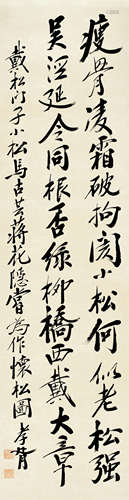 瘦骨凌霜破拘閡小松何似老松强
吴淞延令同根否綠柳橋西戴大章
戴松門子小松馬古芸蔣花隱嘗為作懷松圖 孝胥